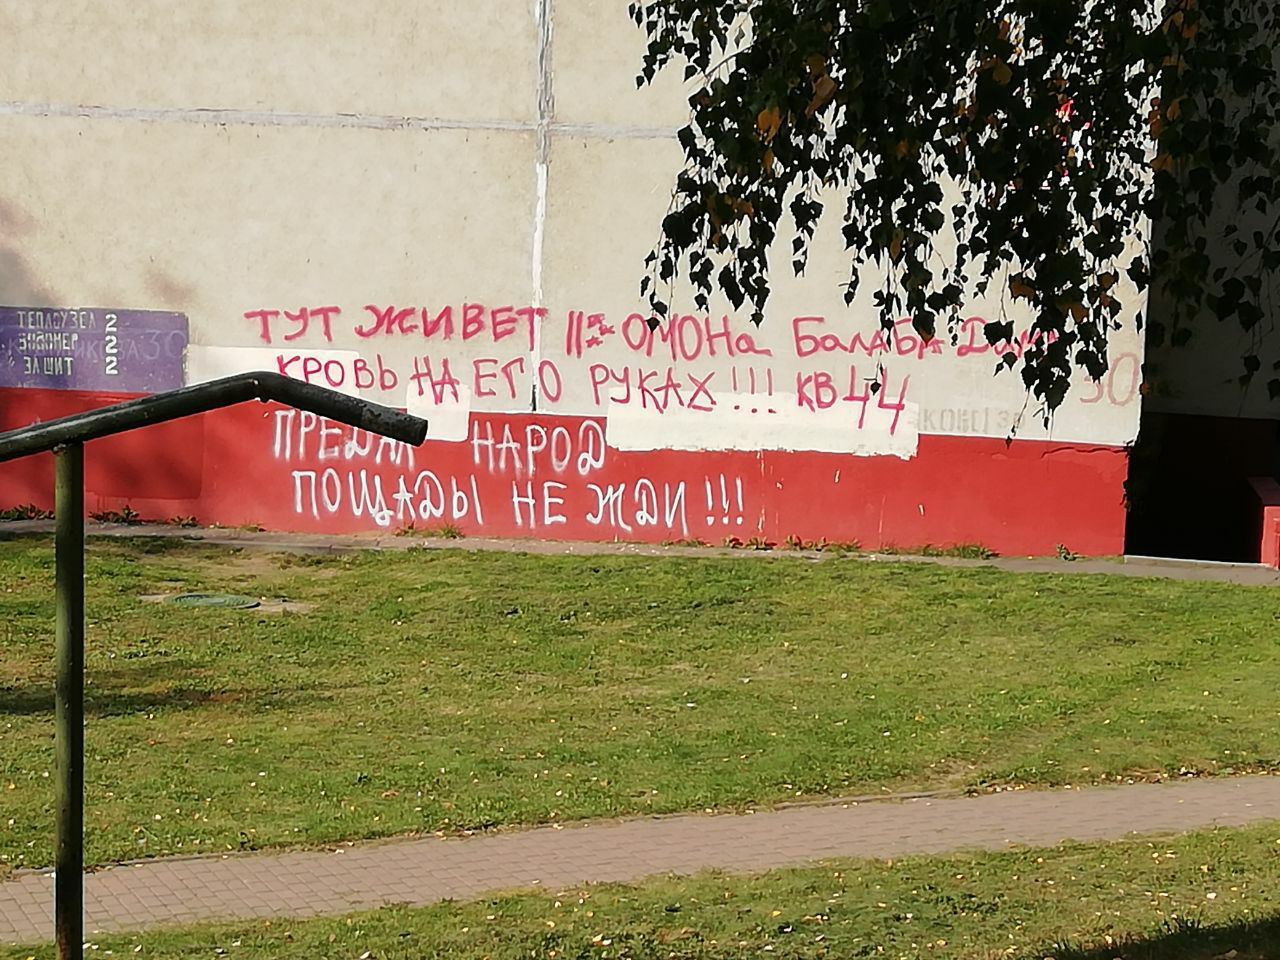 ТЕПЛОУЗЕЛ 2
ВОДОМЕР 2
ЭЛ ЩИТ 2
30
ТУТ ЖИВЕТ ОМОНа БалаБа
КРОВЬ НА ЕГО РУКАХ !!! КВ 44
30
ПРЕДАЛ НАРОД
ПОЩАДЫ НЕ ЖДИ !!!